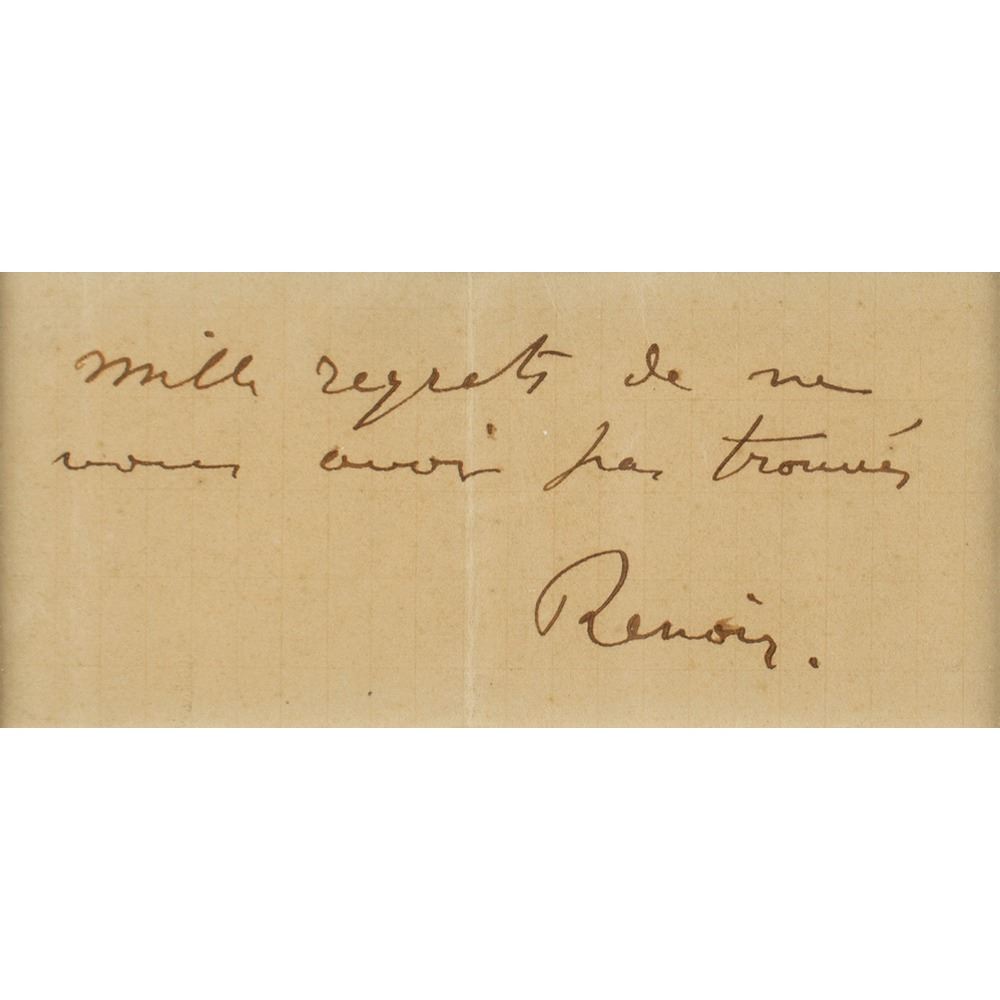 Mille regrets de ne
vous avoir pas trouvés
Renoir.